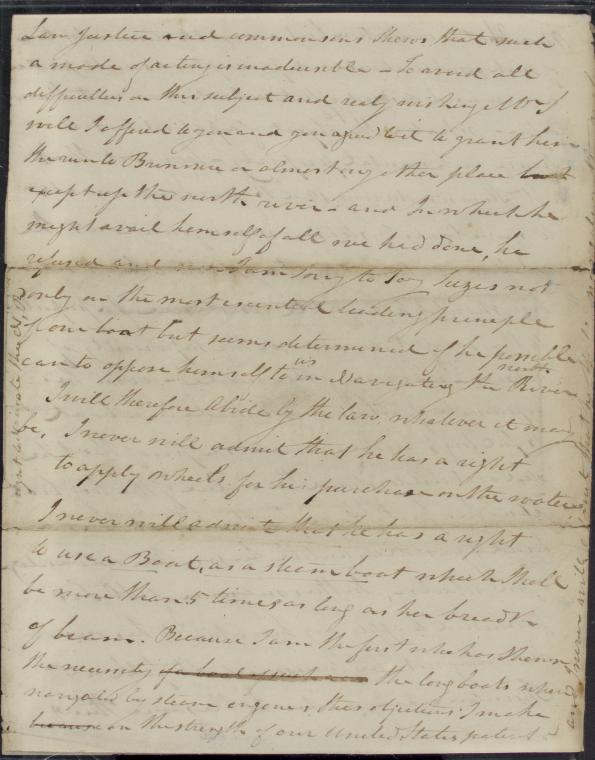 Law Justice and common sens shews that such
a mode of acting is inadmisible – To avoid all
difficulties on this subject and realy wishing Mr S
will I offered to you and you agreed to it to grant him
the rout to Brunswic or almost any other place but
except up the north river – and In which he
might avail himself of all we had done, he
refused and now I am Sorry to Say Seizes not
only on the most essential leading principle
of our boat but seems determined if he possible
can to oppose himself to us in Navigating the north River
I will therefore Abide by the law whatever it may
be, I never will admit that he has a right
to apply wheels for his purchase on the water
I never will admit that he has a right
to use a Boat, as a steam boat which shall
be more than 5 times as long as her breadth
of beam. Because I am the first who has shewn
the necessity for the long boats when
navigated by steam engines these objections I make
because on the strength of our United States patent
and I never will